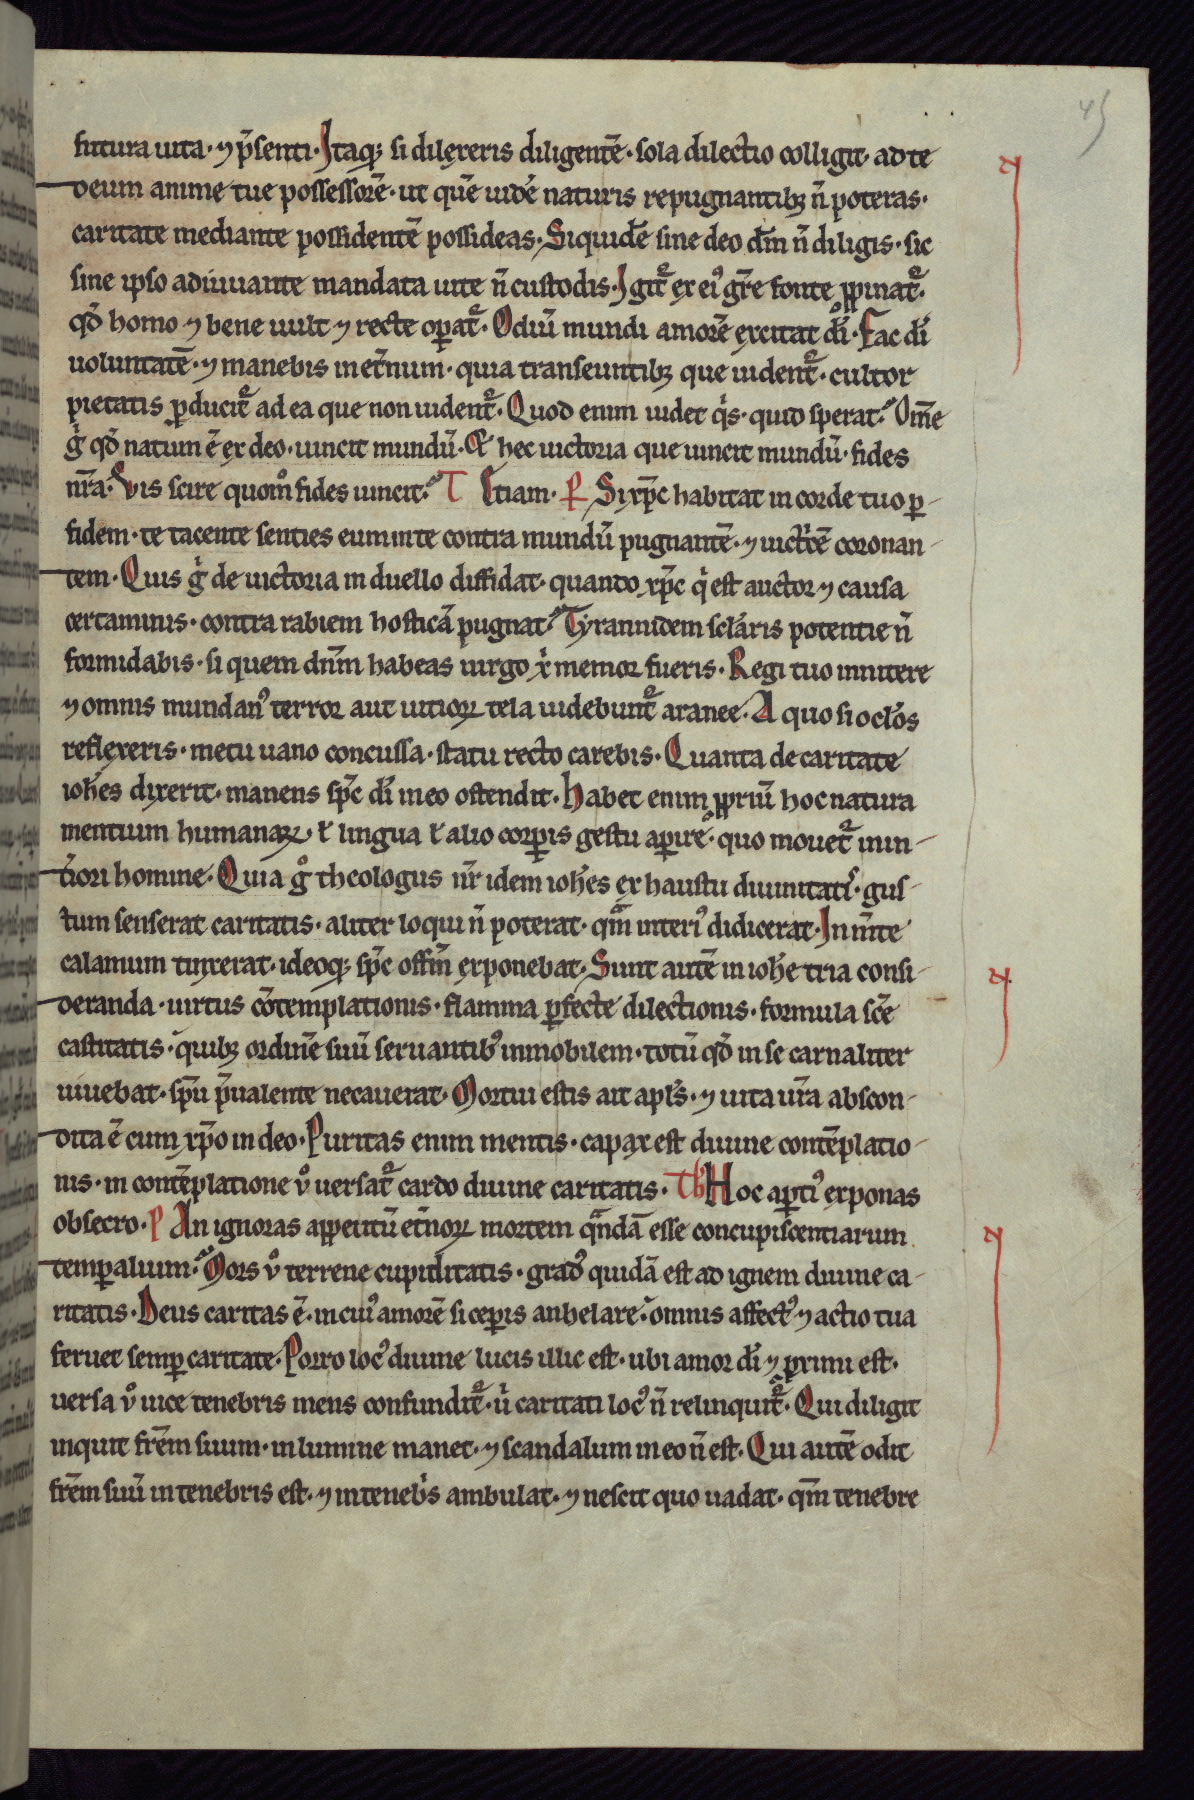 45
futura uita· ⁊ p̄senti· Itaq; si dilexeris diligentē· sola dilectio colligit· ad te
deum anime tue possessorē· ut quē uidē naturis repugnantib; n̄ poteras·
caritate mediante possidentē possideas· Siquidē sine deo dm̄ n̄ diligis· sic
sine ipso adiuuante mandata uite n̄ custodis· Igit᷑ ex ei᷒ gr̄e fonte ꝓpinat᷑·
qd̄ homo ⁊ bene uult ⁊ recte oꝑat᷑· Odiū mundi amorē excitat dī· Fac dī
uoluntatē· ⁊ manebis in et̄num· quia transeuntib; que uident᷑· cultor
pietatis ꝑducit᷑ ad ea que non uident᷑· Quod enim uidet q̇s· quid sperat? Om̄e
g̊ qd̄ natum ē ex deo· uincit mundū· Et hec uictoria que uincit mundū· fides
nr̄a· Vis scire quom̊ fides uincit? T Etiam· P Si xp̄c habitat in corde tuo ꝑ
fidem· te tacente senties eum in te contra mundū pugnantē· ⁊ uictͥcē coronan-
tem· Quis g̊ de uictoria in duello diffidat· quando xp̄c q̇ est auctor ⁊ causa
certaminis· contra rabiem hosticā pugnat? Tyrannidem sclaris potentie n̄
formidabis· si quem dn̄m habeas uirgo x̄ memor fueris· Regi tuo innitere
⁊ omnis mundan᷒ terror aut uitioꝝ tela uidebunt᷑ aranee· A quo si ocl̄os
reflexeris· metu uano concussa· statu recto carebis· Quanta de caritate
ioh̄es dixerit· manens sp̄c dī in eo ostendit· Habet enim ꝓpriū hoc natura
mentium humanaꝝ· ł lingua ł alio corꝑis gestu aꝑire· quo mouet᷑ in in-
tͥori homine· Quia g̊ theologus nr̄ idem ioh̄es ex haustu diuinitatͥ· gus-
tum senserat caritatis· aliter loqui n̄ poterat· qm̄ interi᷒ didicerat· In m̄te
calamum tinxerat· ideoq; sp̄c offm̄ exponebat· Sunt autē in ioh̄e tria consi-
deranda· uirtus cōtemplationis· flamma ꝑfecte dilectionis· formula sc̄e
castitatis· quib; ordinē suū seruantib᷒ inmobilem· totū qd̄ in se carnaliter
uiuebat· sp̄u p̄ualente necauerat· Mortui estis ait apl̄s· ⁊ uita ur̄a abscon-
dita ē cum xp̄o in deo· Puritas enim mentis· capax est diuine contēplatio-
nis· in contēplatione u̇ uersat᷑ cardo diuine caritatis· Th̄ Hoc aꝑti᷒ exponas
obsecro· P An ignoras appetitū et̄noꝝ mortem qn̄dā esse concupiscentiarum
temꝑalium? Mors u̇ terrene cupiditatis· grad᷒ quidā est ad ignem diuine ca-
ritatis· Deus caritas ē· in cui᷒ amorē si ceꝑis anhelare· omnis affect᷒ ⁊ actio tua
feruet semꝑ caritate· Porro loc᷒ diuine lucis illic est· ubi amor dī ⁊ ꝓximi est·
uersa u̇ uice tenebris mens confundit᷑· ū caritati loc᷒ n̄ relinquit᷑· Qui diligit
inquit fr̄em suum· in lumine manet· ⁊ scandalum in eo n̄ est· Qui autē odit
fr̄em suū in tenebris est· ⁊ in tenebͥs ambulat· ⁊ nescit quo uadat· qm̄ tenebre